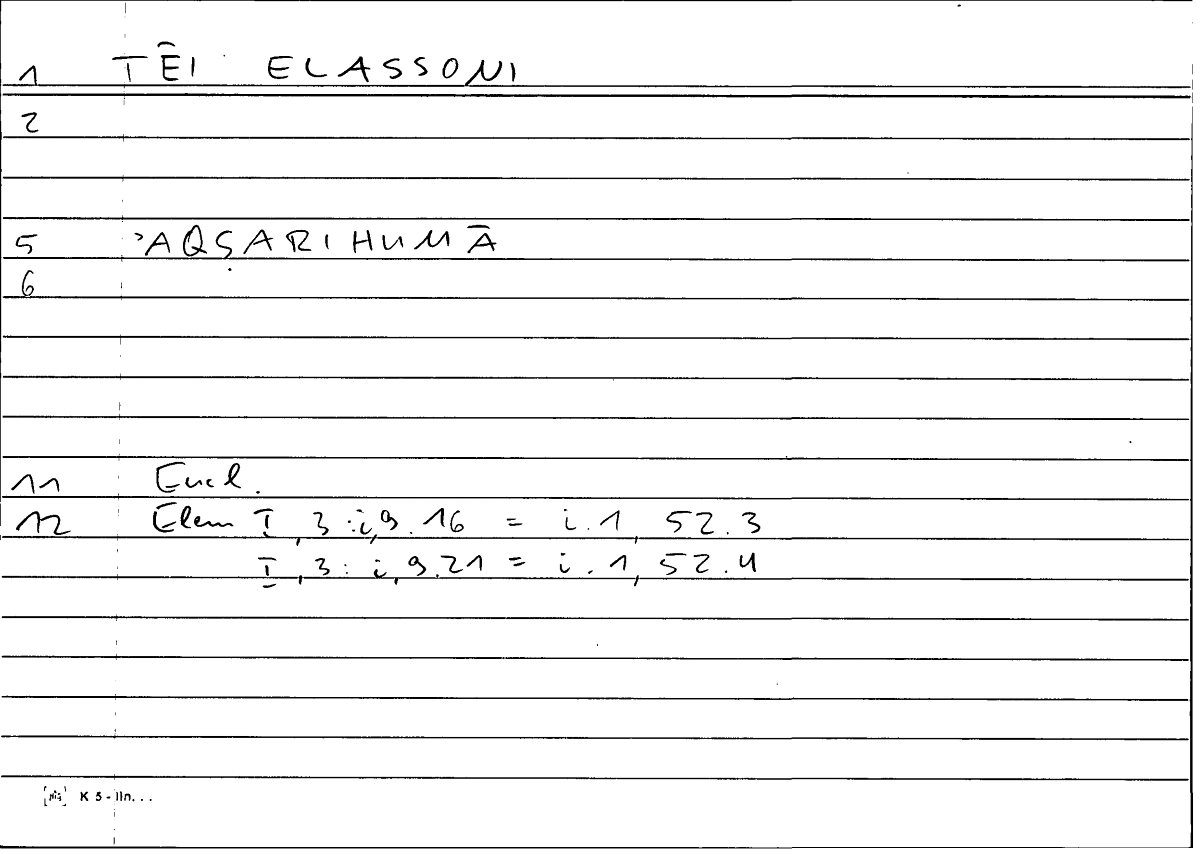 1 TĒI ELASSONI
2
5 ʾAQṢARIHUMĀ
6
11 Eucl.
12 Elem I, 3: i,9.16 = i.1, 52.3
I, 3: i,9.21 = i.1, 52.4
K 5 - lln...